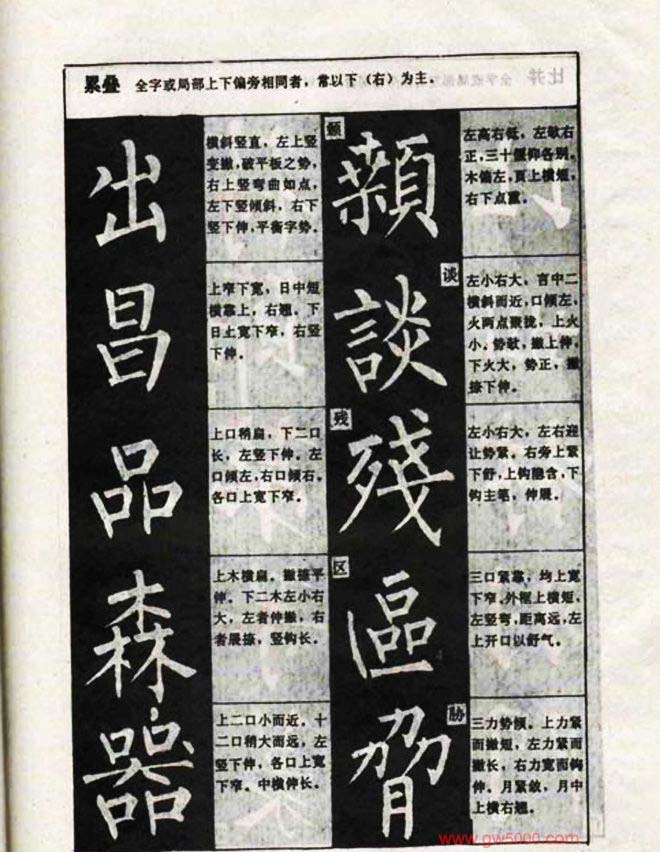 累叠 全字或局部上下偏旁相同者，常以下（右）为主。
出
横斜竖直，左上竖
变撇，破平板之势，
右上竖弯曲如点，
左下竖倾斜，右下
竖下伸，平衡字势。
昌
上窄下宽，日中短
横靠上，右翘。下
日上宽下窄，右竖
下伸。
品
上口稍扁，下二口
长，左竖下伸。左
口倾左，右口倾右。
各口上宽下窄。
森
上木横扁。撇捺平
伸。下二木左小右
大，左者伸撇，右
者展捺，竖钩长。
器
上二口小而近。十
二口稍大而远，左
竖下伸，各口上宽
下窄。中横伸长。
颡
顙
左高右低，左欹右
正，三十偃仰各别。
木偏左，頁上横短，
右下点重。
谈
談
左小右大，言中二
横斜而近，口倾左，
火两点聚拢，上火
小、势欹，撇上伸，
下火大，势正，撇
捺下伸。
残
殘
左小右大，左右迎
让势紧。右旁上紧
下舒，上钩隐含，下
钩主笔，伸展。
区
區
三口紧靠，均上宽
下窄。外框上横短，
左竖弯，距离远，左
上开口以舒气。
三力势倾。上力紧
而撇短，左力紧而
撇长，右力宽而钩
伸。月紧敛，月中
上横右翘。
www.gw5000.com